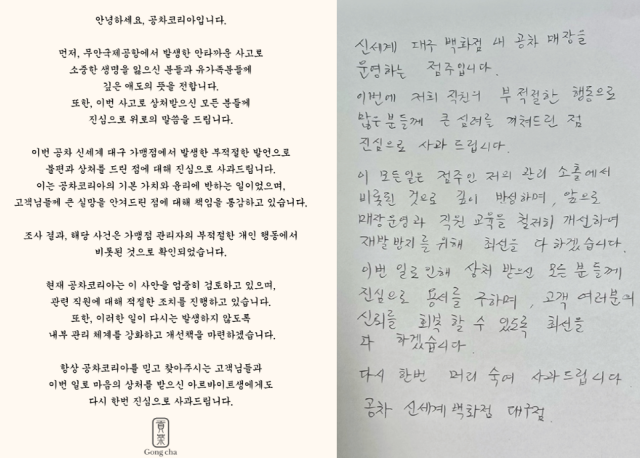 안녕하세요, 공차코리아입니다.
먼저, 무안국제공항에서 발생한 안타까운 사고로
소중한 생명을 잃으신 분들과 유가족분들께
깊은 애도의 뜻을 전합니다.
또한, 이번 사고로 상처받으신 모든 분들께
진심으로 위로의 말씀을 드립니다.
이번 공차 신세계 대구 가맹점에서 발생한 부적절한 발언으로
불편과 상처를 드린 점에 대해 진심으로 사과드립니다.
이는 공차코리아의 기본 가치와 윤리에 반하는 일이었으며,
고객님들께 큰 실망을 안겨드린 점에 대해 책임을 통감하고 있습니다.
조사 결과, 해당 사건은 가맹점 관리자의 부적절한 개인 행동에서
비롯된 것으로 확인되었습니다.
현재 공차코리아는 이 사안을 엄중히 검토하고 있으며,
관련 직원에 대해 적절한 조치를 진행하고 있습니다.
또한, 이러한 일이 다시는 발생하지 않도록
내부 관리 체계를 강화하고 개선책을 마련하겠습니다.
항상 공차코리아를 믿고 찾아주시는 고객님들과
이번 일로 마음의 상처를 받으신 아르바이트생에게도
다시 한번 진심으로 사과드립니다.
貢茶
Gong cha
신세계 대구 백화점 내 공차 매장을
운영하는 점주입니다.
이번에 저희 직원의 부적절한 행동으로
많은 분들께 큰 심려를 끼쳐드린 점
진심으로 사과 드립니다.
이 모든일은 점주인 저의 관리 소홀에서
비롯된 것으로 깊이 반성하며, 앞으로
매장운영과 직원 교육을 철저히 개선하여
재발방지를 위해 최선을 다하겠습니다.
이번 일로 인해 상처 받으신 모든 분들께
진심으로 용서를 구하며, 고객 여러분의
신뢰를 회복 할 수 있도록 최선을
다 하겠습니다.
다시 한번 머리 숙여 사과드립니다
공차 신세계백화점 대구점.